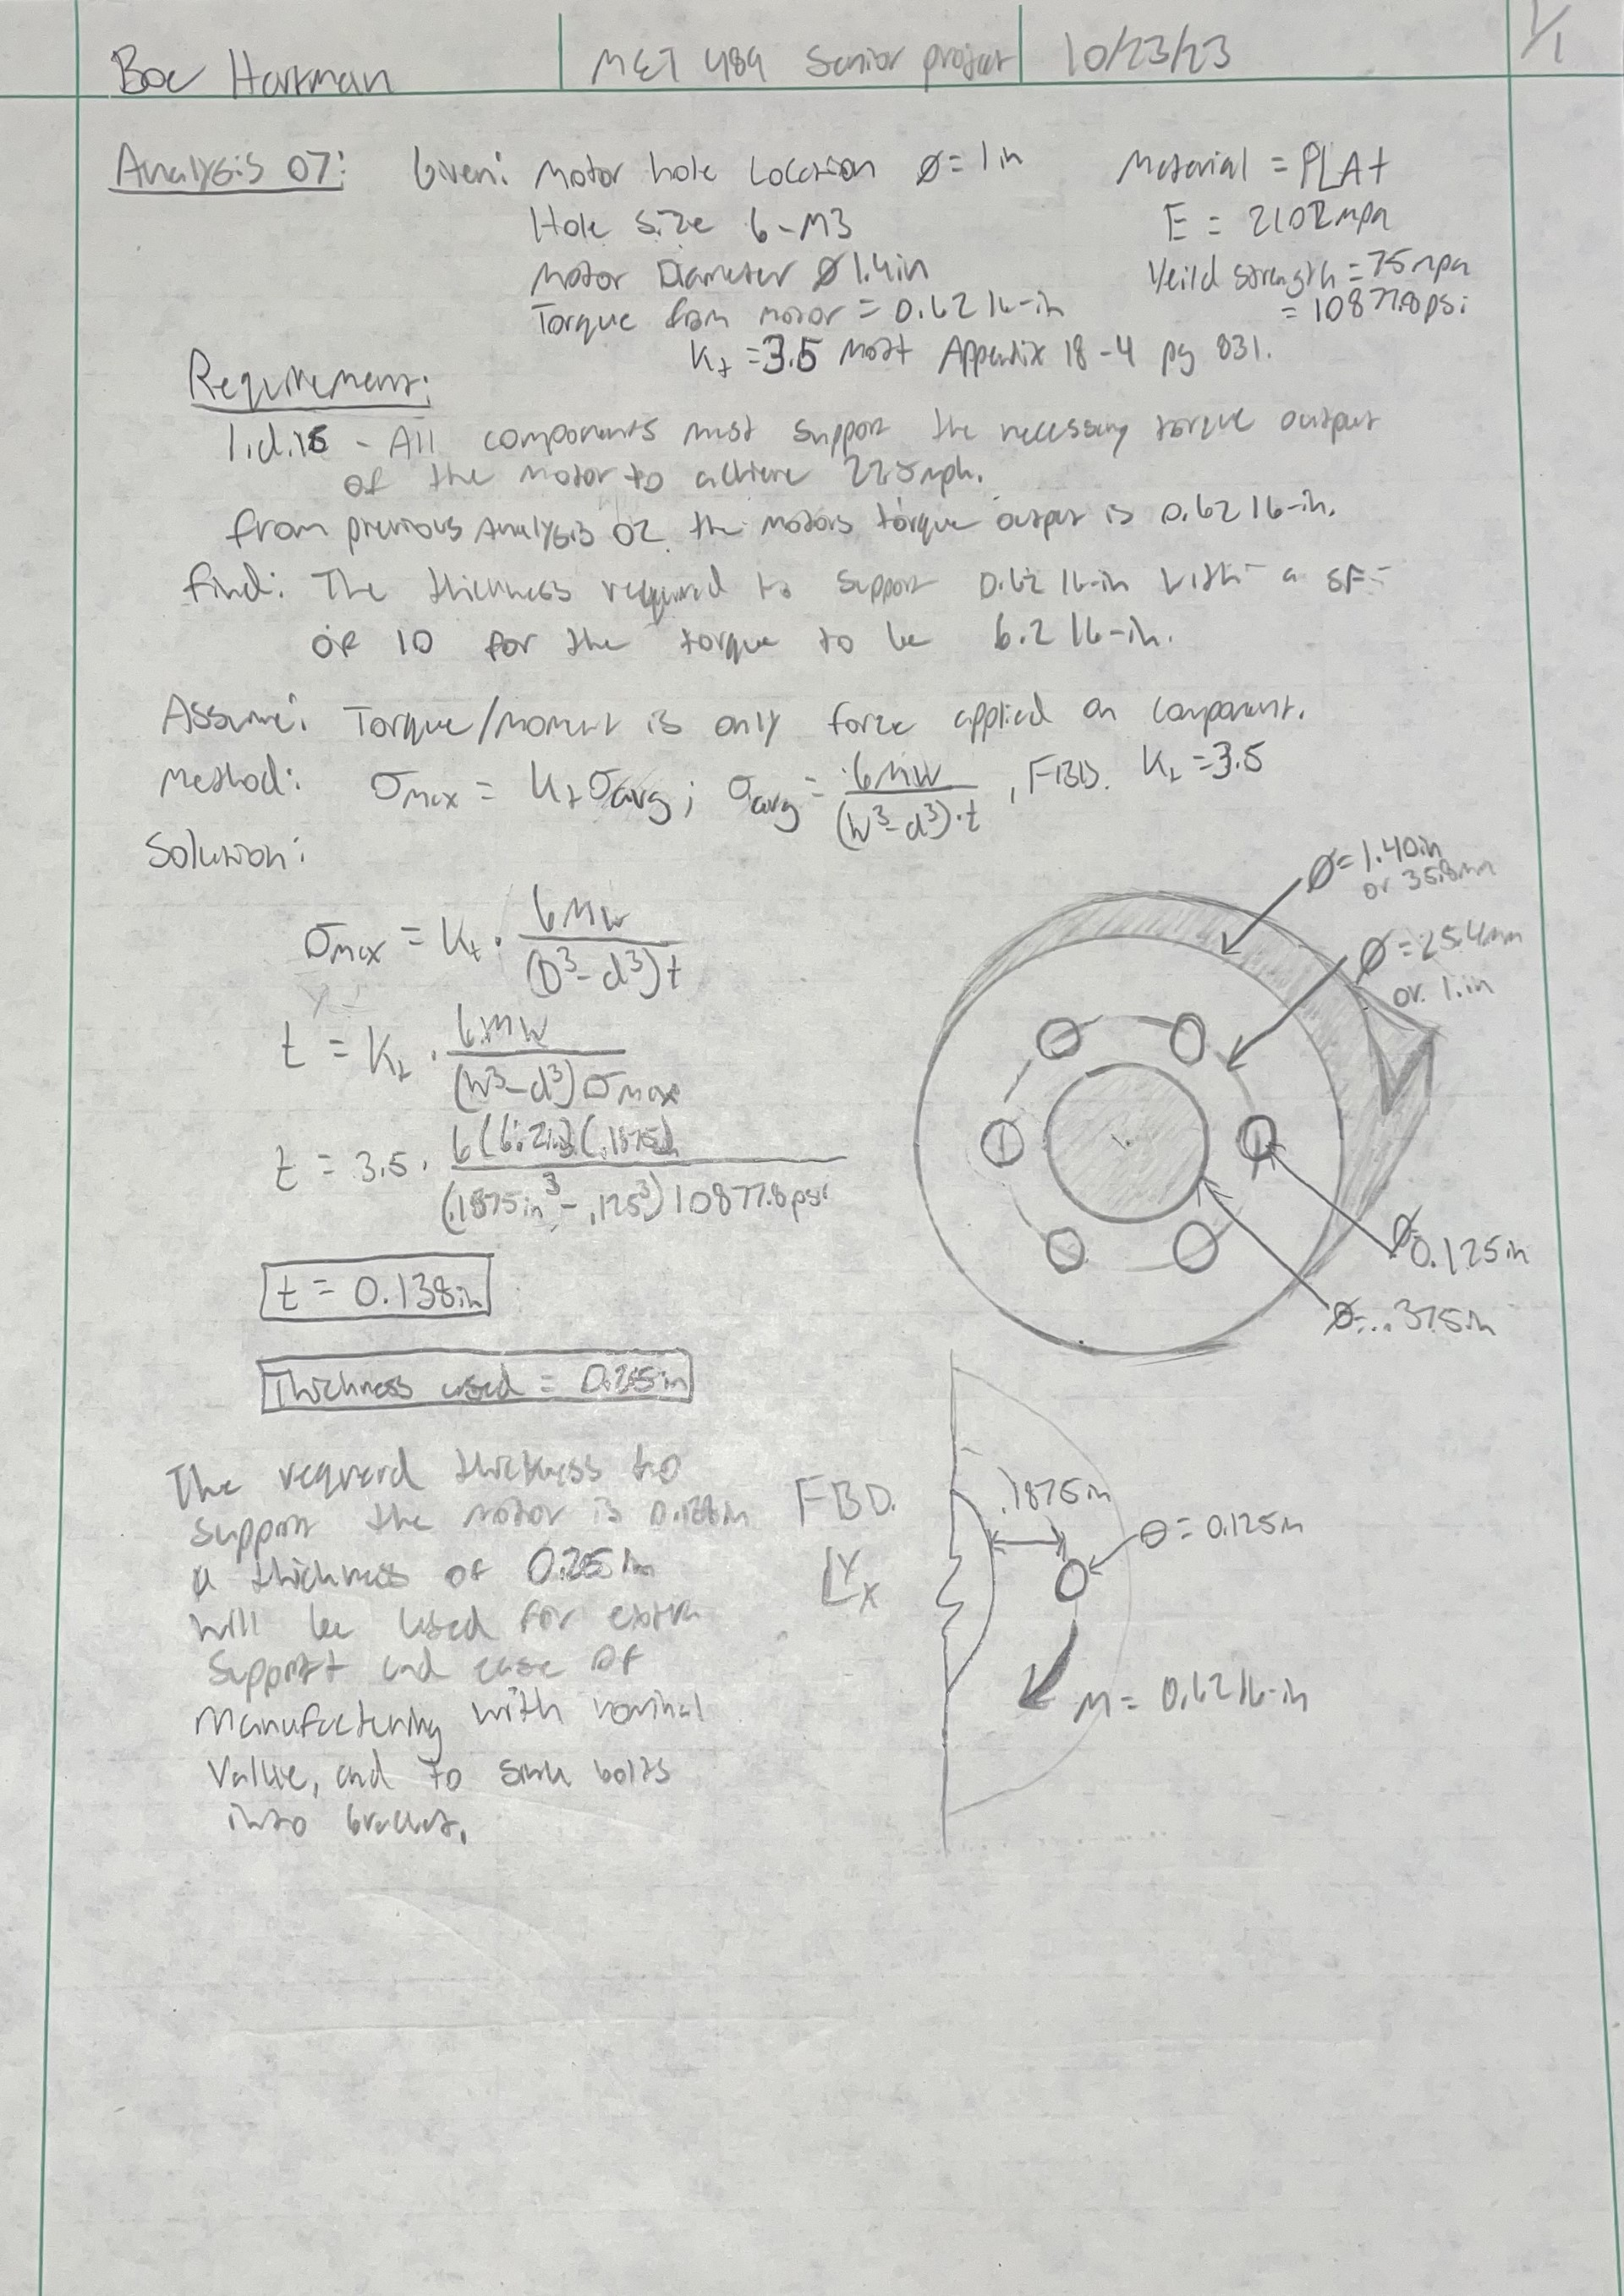 Boe Hartman | MET 489 Senior project | 10/23/23 1/1
Analysis 07: Given: Motor hole Location Ø = 1in Material = PLA+
Hole size 6-M3 E = 2102mpa
Motor Diameter Ø1.4in Yeild strength = 75mpa
Torque from motor = 0.62 lb-in = 10877.8psi
Kt = 3.5 Mott Appendix 18-4 pg 831.
Requirement:
1.d.15 - All components must support the necessary torque output
of the motor to achieve 225mph.
from previous Analysis 02 the motors torque output is 0.62 lb-in.
find: The thickness required to support 0.62 lb-in with a SF=
of 10 for the torque to be 6.2 lb-in.
Assume: Torque/Moment is only force applied on component.
Method: σmax = Kt σavg ; σavg = 6MW/(W³-d³)·t , FBD. Kt = 3.5
Solution:
σmax = Kt · 6Mw/(D³-d³)t
t = Kt · 6MW/(W³-d³)σmax
t = 3.5 · 6(6.2)(.1875)/(.1875in³ - .125³)10877.8psi
t = 0.138in
Thickness used = 0.25in
The requierd thickness to
support the motor is 0.138in
a thickness of 0.25in
will be used for extra
support and ease of
manufacturing with nominal
value, and to sink bolts
into bracket.
Ø = 1.40in
or 35.8mm
Ø = 25.4mm
or 1.in
Ø 0.125in
Ø .375in
FBD.
Y
X
.1875in
Ø = 0.125in
M = 0.62 lb-in